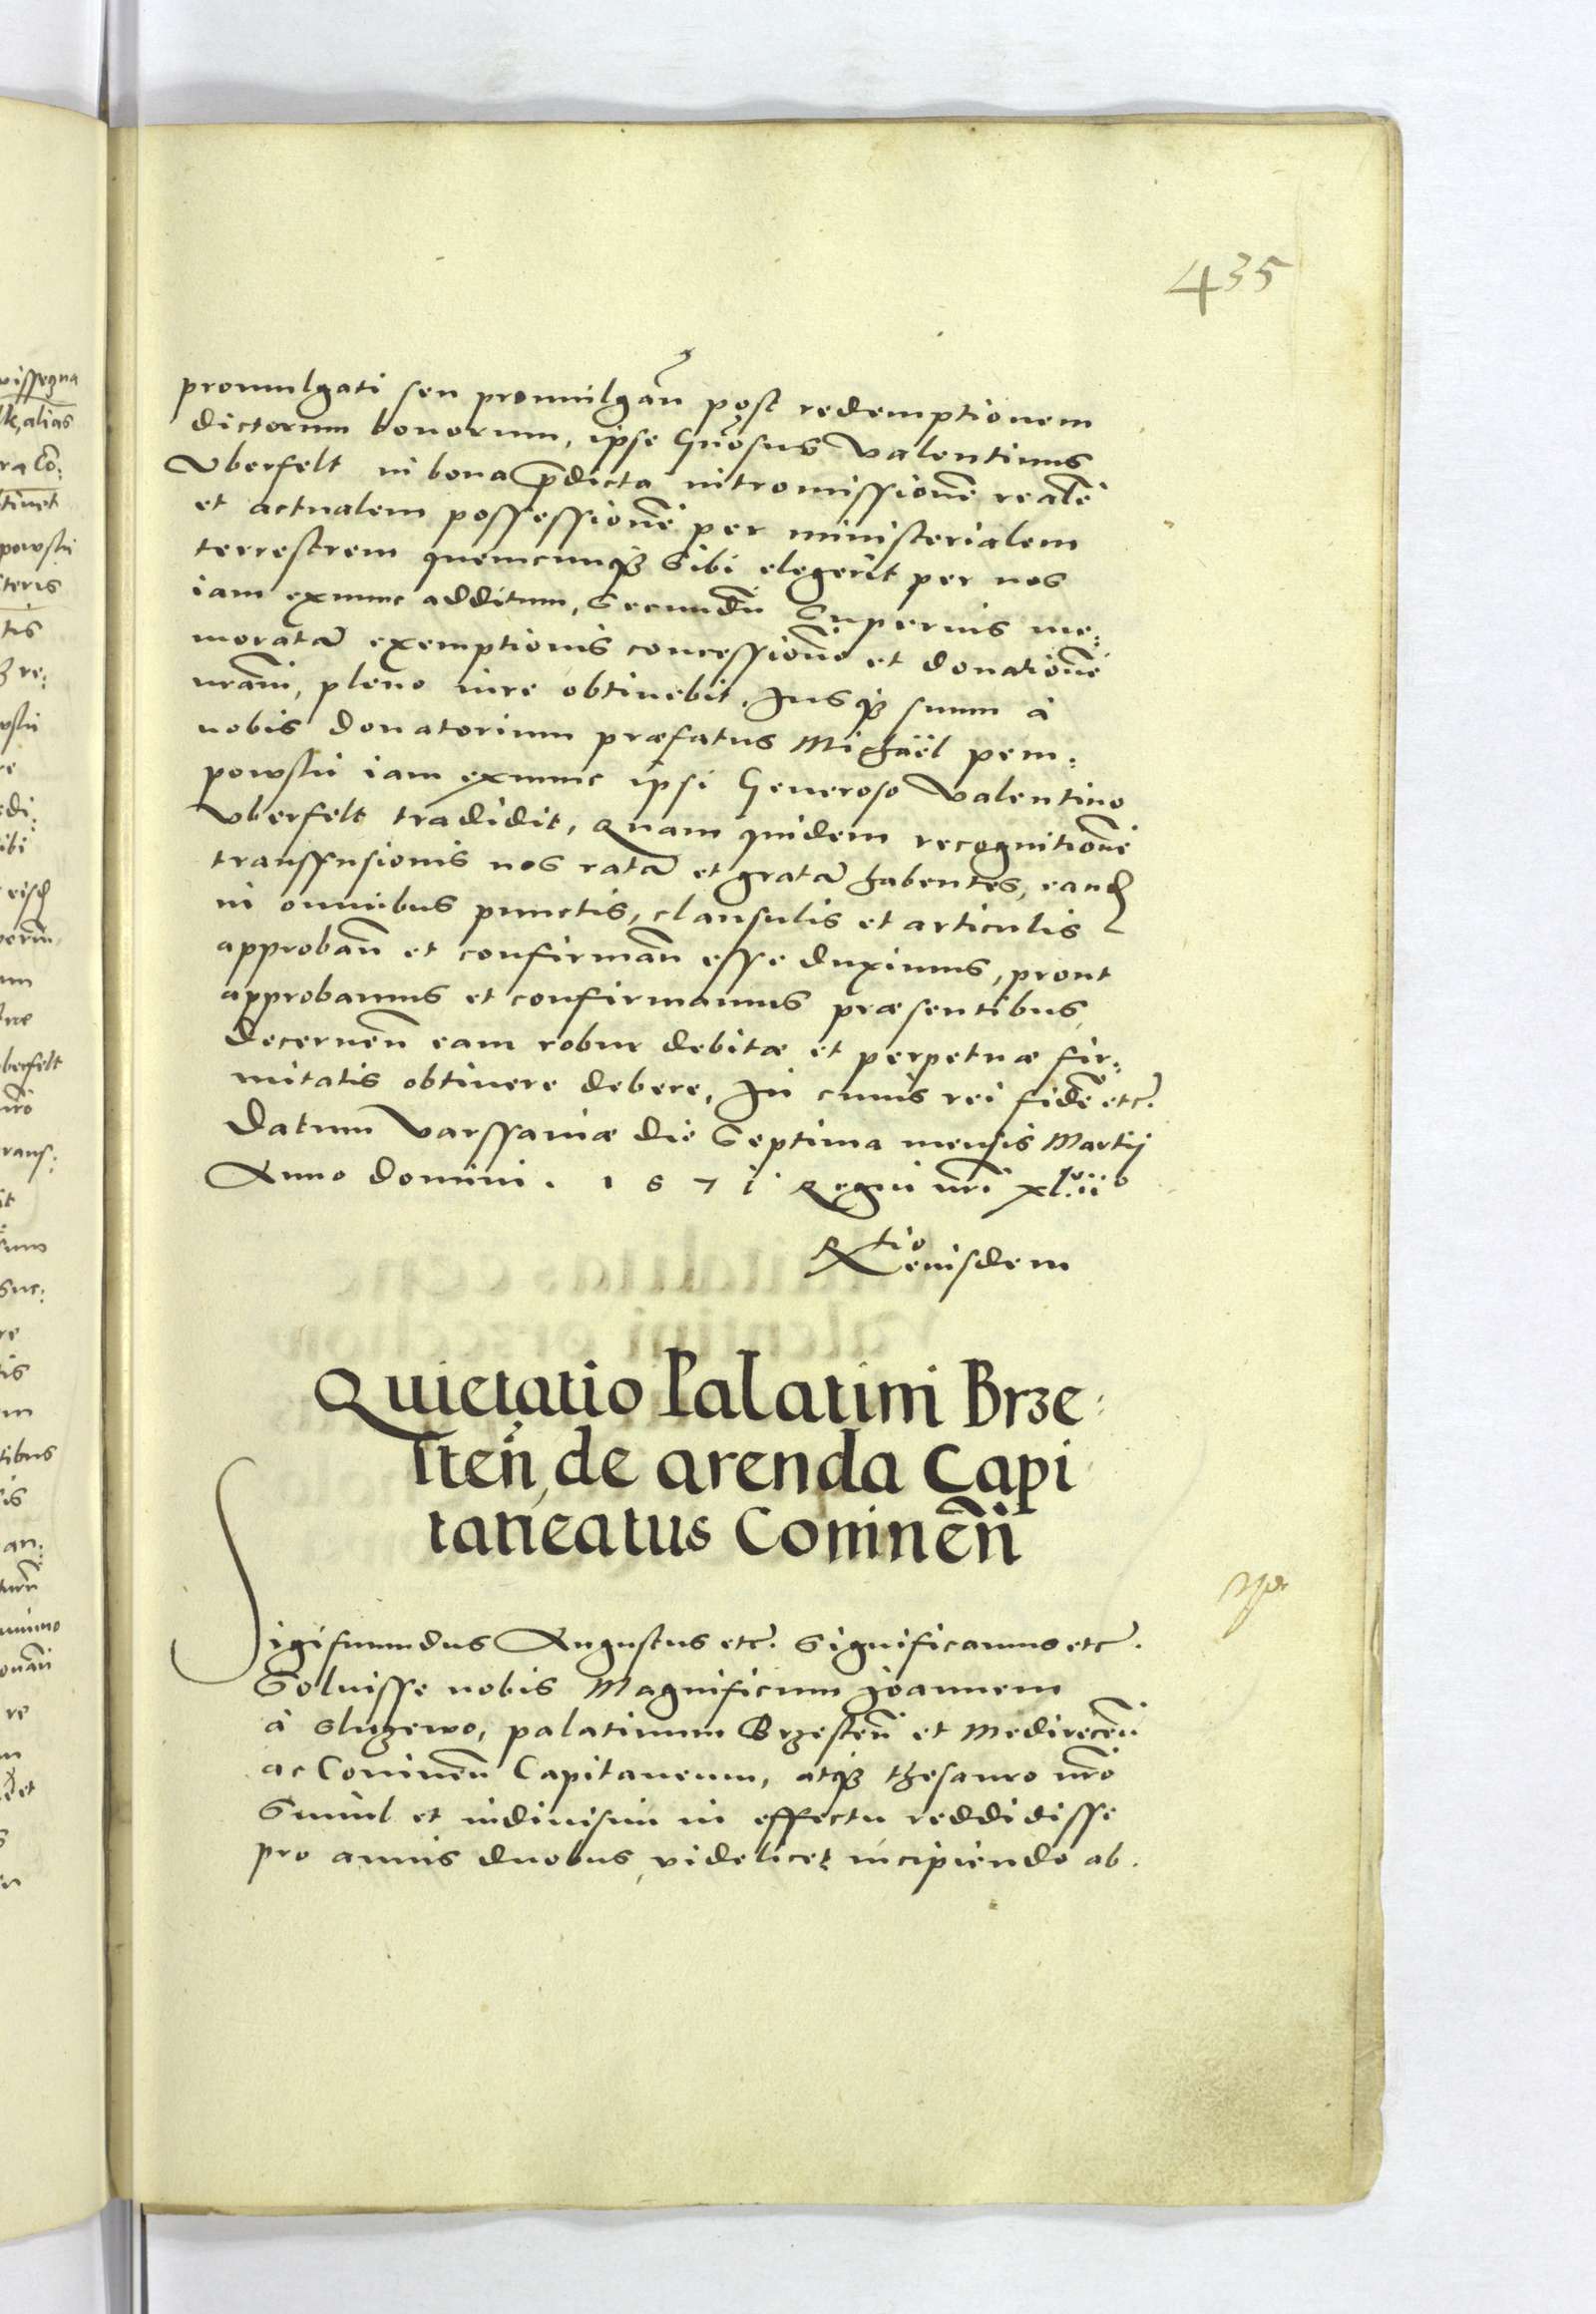 435
promulgati seu promulgañ post redemptionem
dictorum bonorum, ipse Gñosus Valentinus
Vberfelt in bona p̄dicta intromissionē realē
et actualem possessionē per ministerialem
terrestrem quemcunqꝫ sibi elegerit per nos
iam exnunc additum, secundū superius me:
moratā exemptionis concessionē et donationē
nr̄am, pleno iure obtinebit. Jusqꝫ suum à
nobis donatorium præfatus Michaël pem:
powski iam exnunc ipsi Generoso Valentino
Vberfelt tradidit, Quam quidem recognitionē
transfusionis nos ratā et gratā habentes, eand
in omnibus punctis, clausulis et articulis
approbañ et confirmañ esse duximus, prout
approbamus et confirmamus præsentibus,
decerneñ eam robur debitæ et perpetuæ fir:
mitatis obtinere debere, In cuius rei fidē etc.
Datum Varssauiæ die Septima mensis Martij
Anno domini . 1 5 7 1 Regni nr̄i xl:ii
Rtio eiusdem
Quietatio Palatini Brze:
steñ, de arenda Capi
taneatus Coninēn
Sigismundus Augustus etc. Significamus etc.
Soluisse nobis Magnificum Joannem
à Sluzewo, palatinum Brzesteñ et Medirecēn
ac Conineñ Capitaneum, atqꝫ thesauro nr̄o
Simul et indiuisim in effectu reddidisse
pro annis duobus, videlicet incipiendo ab.